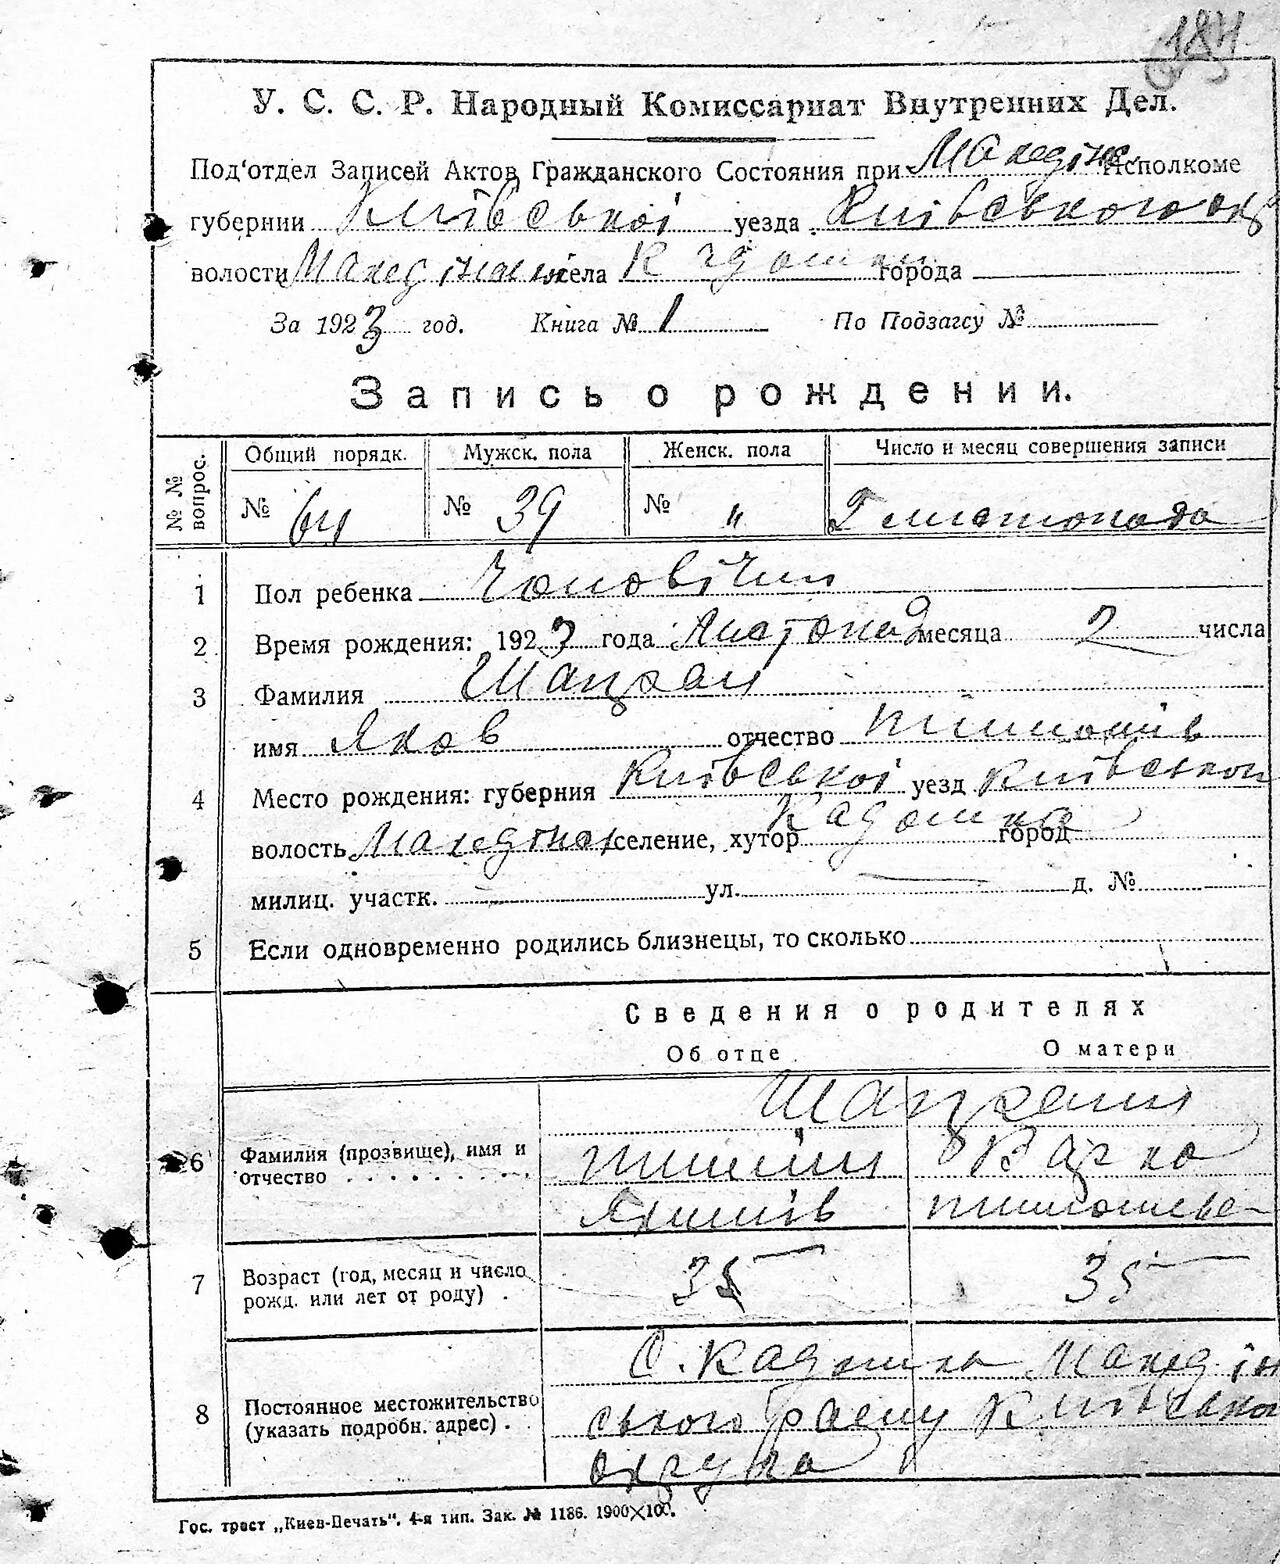 184
У. С. С. Р. Народный Комиссариат Внутренних Дел.
Под'отдел Записей Актов Гражданского Состояния при Македінс. Исполкоме
губернии Київської уезда Київського окр
волости Македінської села Кадомки города
За 1923 год. Книга № 1 По Подзагсу №
Запись о рождении.
№ № вопрос. Общий порядк. Мужск. пола Женск. пола Число и месяц совершения записи
№ 64 № 39 № " 2 листопада
1 Пол ребенка Чоловічий
2 Время рождения: 1923 года Листопад месяца 2 числа
3 Фамилия
имя Яков отчество Тимошів
4 Место рождения: губерния Київської уезд Київській
волость селение, хутор Кадомка город
милиц. участк. ул. д. №
5 Если одновременно родились близнецы, то сколько
Сведения о родителях
Об отце О матери
6 Фамилия (прозвище), имя и
отчество
7 Возраст (год, месяц и число
рожд. или лет от роду) . 35 35
С. Кадомка Македін
8 Постоянное местожительство
(указать подробн. адрес) . ського раену Київської
округа
Гос. трест „Киев-Печать". 4-я тип. Зак. № 1186. 1900×100.